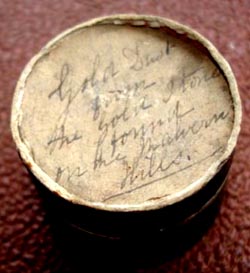 Gold Dust
from
the gold stone
found
on the Malvern
Hills.